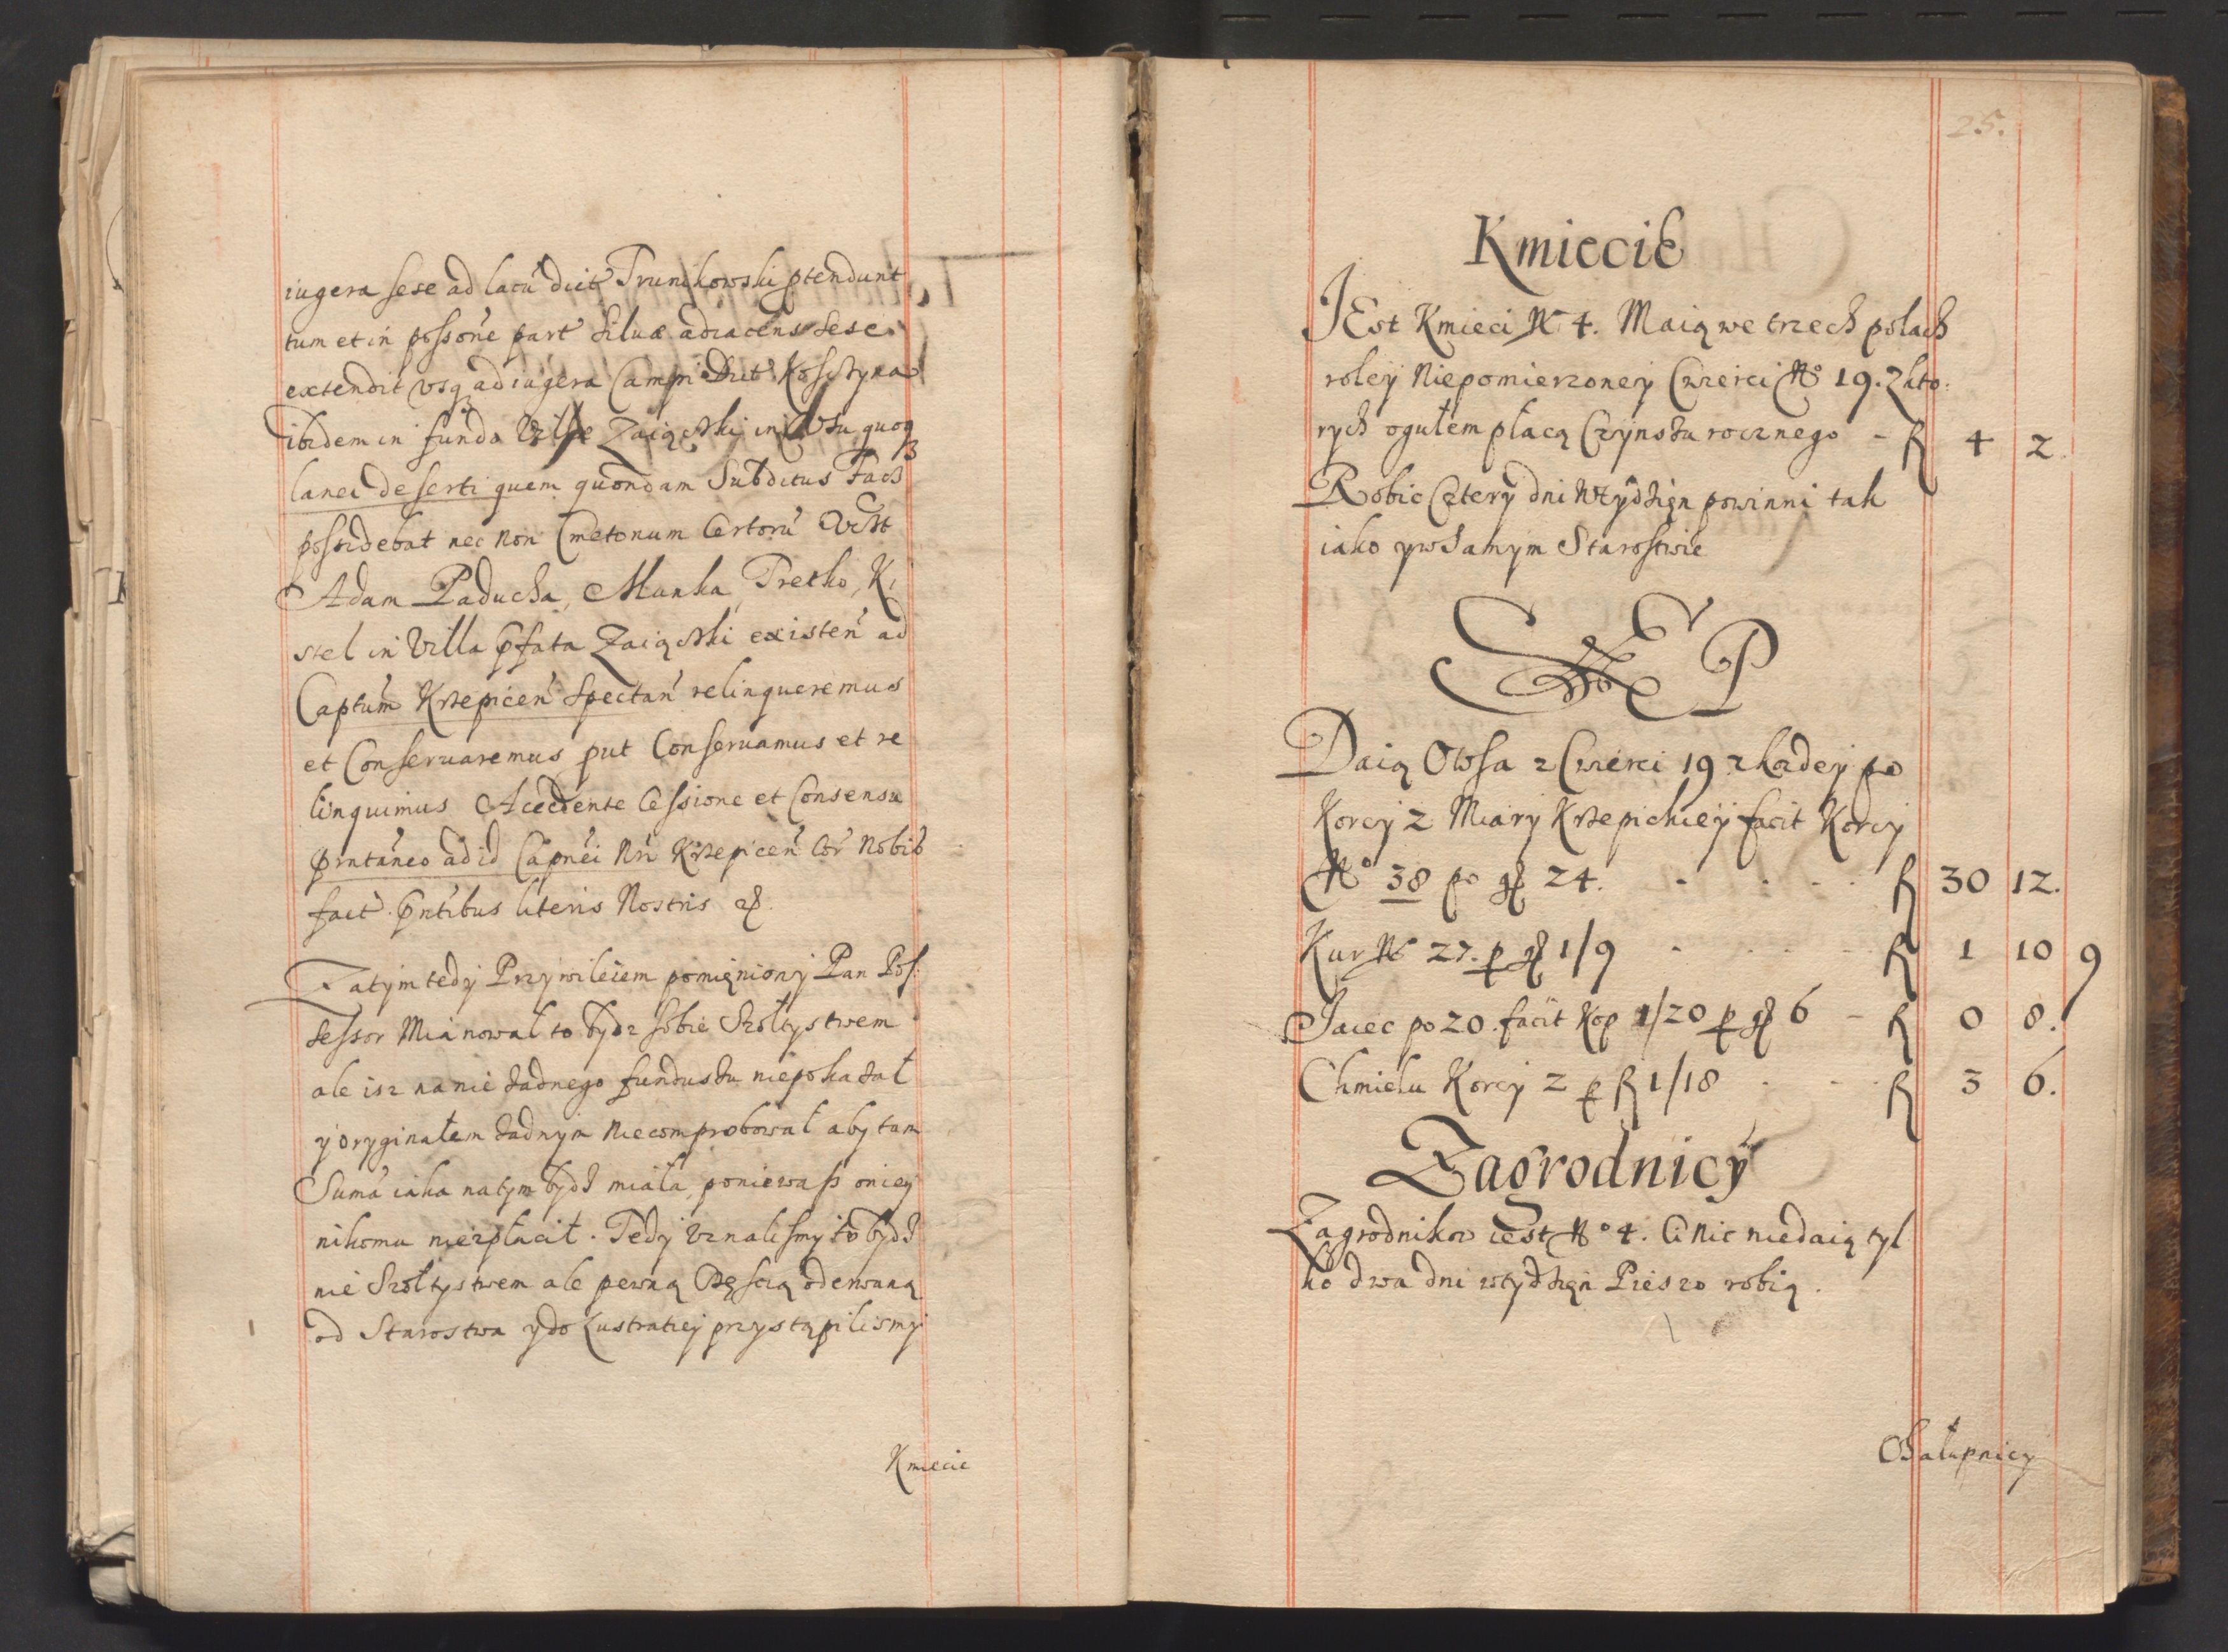 iugera sese ad lacū dict Trunikowski ptendunt
tum et in possone part Siluæ adiacens sese
extendit vsq ad iugera Campi dict Kosctyna
ibidem in fundo Villæ Zaiączki in Vsu quoq
lanei deserti quem quondam Subditus Fach
possidebat nec non Cmetonum Certorū
Adam Paducha, Munka, Pretko, K
stel in Villa pfata Zaiączki existen ad
Captum Krzepicen Spectan relinqueremus
et Conseruaremus put Conseruamus et re
linquimus Accedente Cessione et Consensu
prntaneo ad id Capnei Nri Krzepicen Cor Nobis
fact. Pntibus literis Nostris
Zatym tedy Przywileiem pomięniony Pan Pos
sessor Mianował to bydz sobie Szołtystwem
ale isz na nie żadnego fundusżu niepokazał
y oryginałem żadnym niecomprobował aby tam
Suma iaka natym bydź miała, poniewasz oniey
nikomu niezpłacił. Tedy Vznalismy to bydź
nie Szołtystwem ale pewną Częscią oderwaną
od Starostwa y do Lustratiey przystąpilismy
Kmiecie
25.
Kmiecie
JEst Kmieci No 4. Maią we trzech polach
roley Niepomierzoney Czwierci No 19. Zkto:
rych ogułem płacą Czynszu rocznego - f 4 2
Robic Cztery dni Wtydzięn powinni tak
iako y w Samym Starostwie
SEP
Daią Owsa z Czwierci 19 z kazdey po
Korcy 2 Miary Krzepickiey facit Korcy
No 38 po gr 24. f 30 12.
Kur No 27. p gr 1/9 f 1 10 9
Jaiec po 20. facit Kop 1/20 p gr 6 - f 0 8.
Chmielu Korcy 2 p f 1/18 f 3 6.
Zagrodnicy
Zagrodnikow iest No 4. Ci Nic niedaią tyl
ko dwa dni wtydzięn Pieszo robią.
Chałupnicy